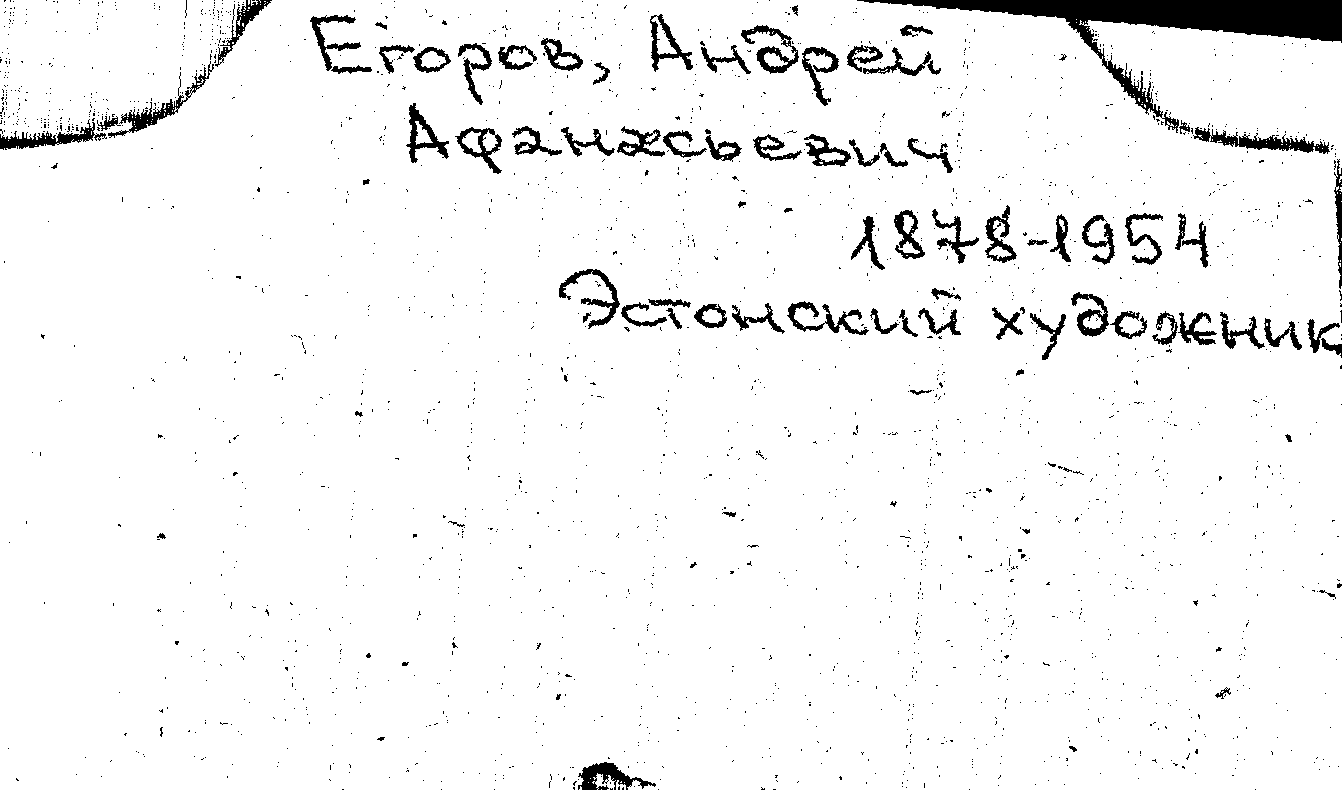 Егоров, Андрей
Афанасьевич
1878-1954
Эстонский художник